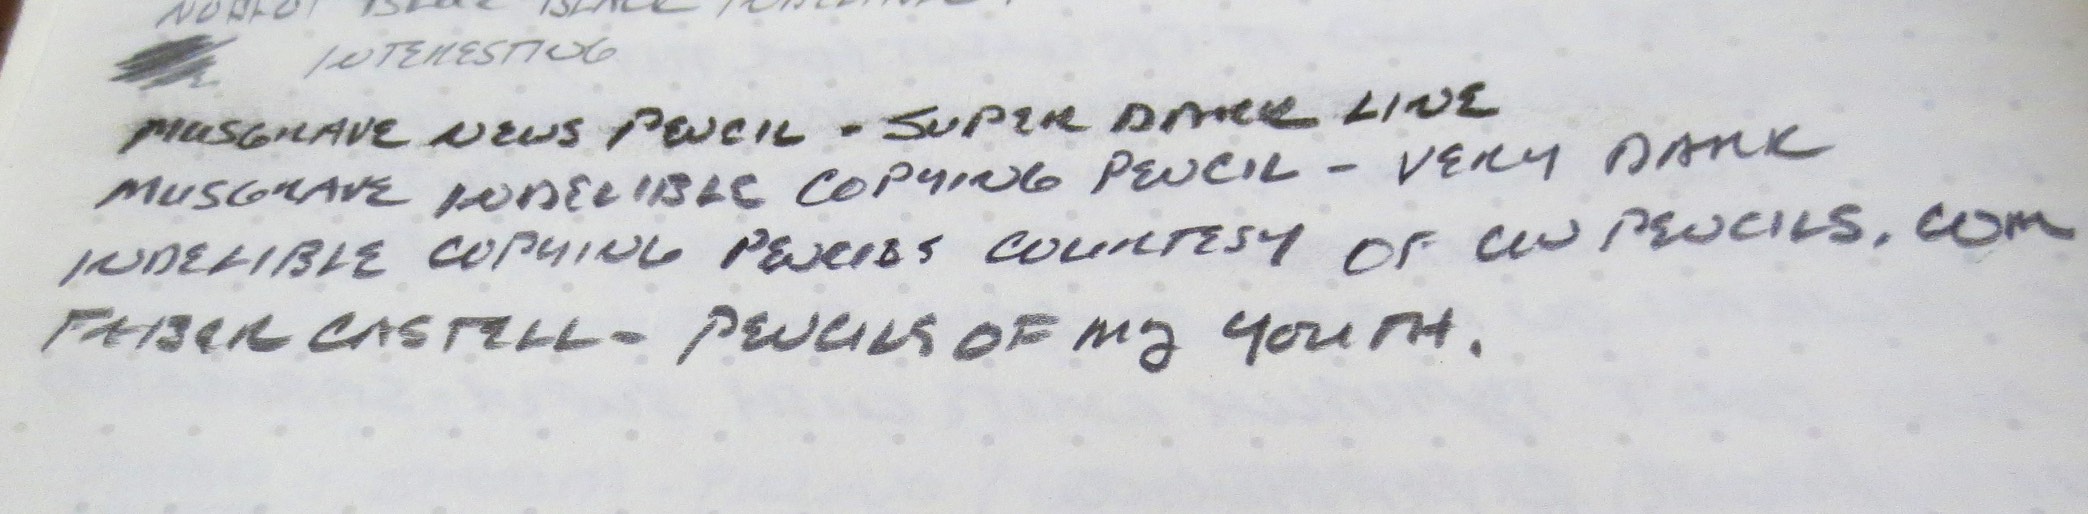 INTERESTING
MUSGRAVE NEWS PENCIL - SUPER DARK LINE
MUSGRAVE INDELIBLE COPYING PENCIL - VERY DARK
INDELIBLE COPYING PENCILS COURTESY OF CW PENCILS.COM
FABER CASTELL - PENCILS OF MY YOUTH.